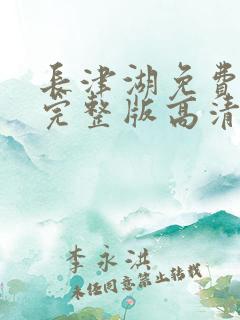 長津湖免費
完整版高清
李永洪
未经同意禁止转载